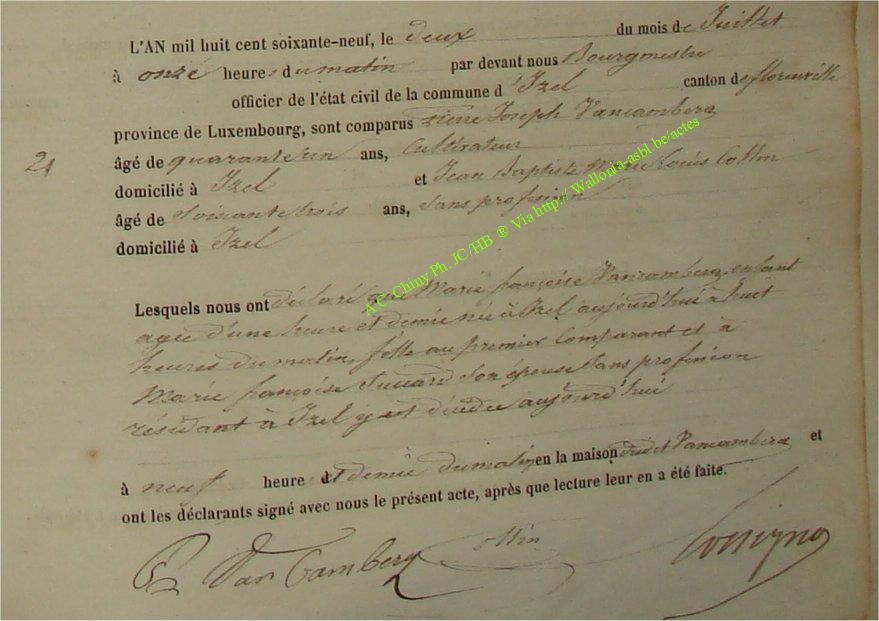 L'AN mil huit cent soixante-neuf, le deux du mois de Juillet
à onze heures du matin par devant nous Bourgmestre
officier de l'état civil de la commune d'Izel canton de florenville
province de Luxembourg, sont comparus Pierre Joseph Vancamberg
21
âgé de quarante un ans, Cultivateur
domicilié à Izel et Jean Baptiste Marie Louis Collin
âgé de Soixante trois ans, Sans profession
domicilié à Izel
A.C. Chiny Ph. JC/HB ® Via http// Wallonia-asbl.be/actes
Lesquels nous ont déclaré que Marie françoise Vancamberg, enfant
agée d'une heure et demie née à Izel aujourd'hui à huit
heures du matin, fille au premier Comparant et à
Marie françoise Son épouse Sans profession
résidant à Izel y est décédée aujourd'hui
à neuf heure et demie du matin en la maison dudit Vancamberg et
ont les déclarants signé avec nous le présent acte, après que lecture leur en a été faite.
Van Camberg